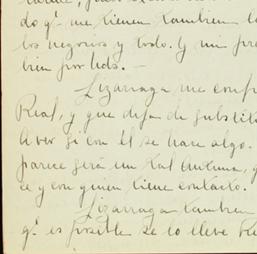 do q.' me tienen tambien l
los negocios y todo. Y mi pre
bien por Uds. —
Lizarraga me conf
Real, y que deja de substit
a ver si con él se hace algo.
parece será un tal Antuna, y
ce y con quien tiene contacto.
Lizarraga tambien
q.' es posible se lo lleve Re